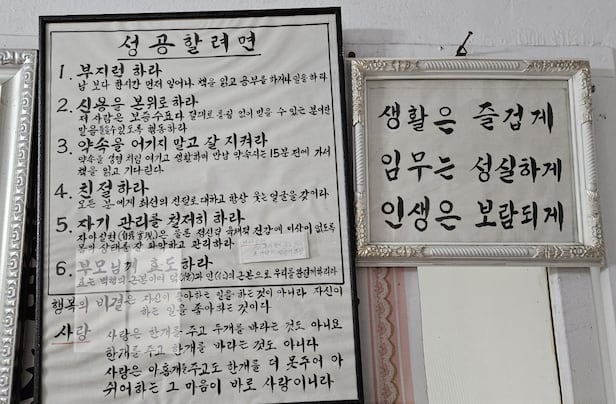 성공할려면
1. 부지런 하라
남 보다 한시간 먼저 일어나 책을 읽고 공부를 하거나 일을 하라
2. 신용을 본위로 하라
저 사람은 보증수표다 절대로 틀림 없이 믿을 수 있는 분이란
말을 들을수 있도록 행동하라
3. 약속을 어기지 말고 잘 지켜라
약속을 생명 처럼 여기고 생활하며 만남 약속시는 15분 전에 가서
책을 읽고 기다린다.
4. 친절하라
모든 분에게 최선의 친절로 대하고 항상 웃는 얼굴을 갖어라
5. 자기 관리를 철저히 하라
자아실현(自我實現)은 물론 정신건 육체적 건강에 이상이 없도록
몸의 상태를 잘 파악하고 관리하라
6. 부모님께 효도하라
효는 백행의 근본이며 인(仁)의 근본으로
행복의 비결은 자신이 좋아하는 일을 하는것이 아니라 자신이
하는 일을 좋아하는 것이다
사랑
사랑은 한개를 주고 두개를 바라는 것도 아니요
한개를 주고 한개를 바라는 것도 아니다
사랑은 아홉개를 주고도 한개를 더 못주어 아
쉬어하는 그 마음이 바로 사랑이니라
생활은 즐겁게
임무는 성실하게
인생은 보람되게